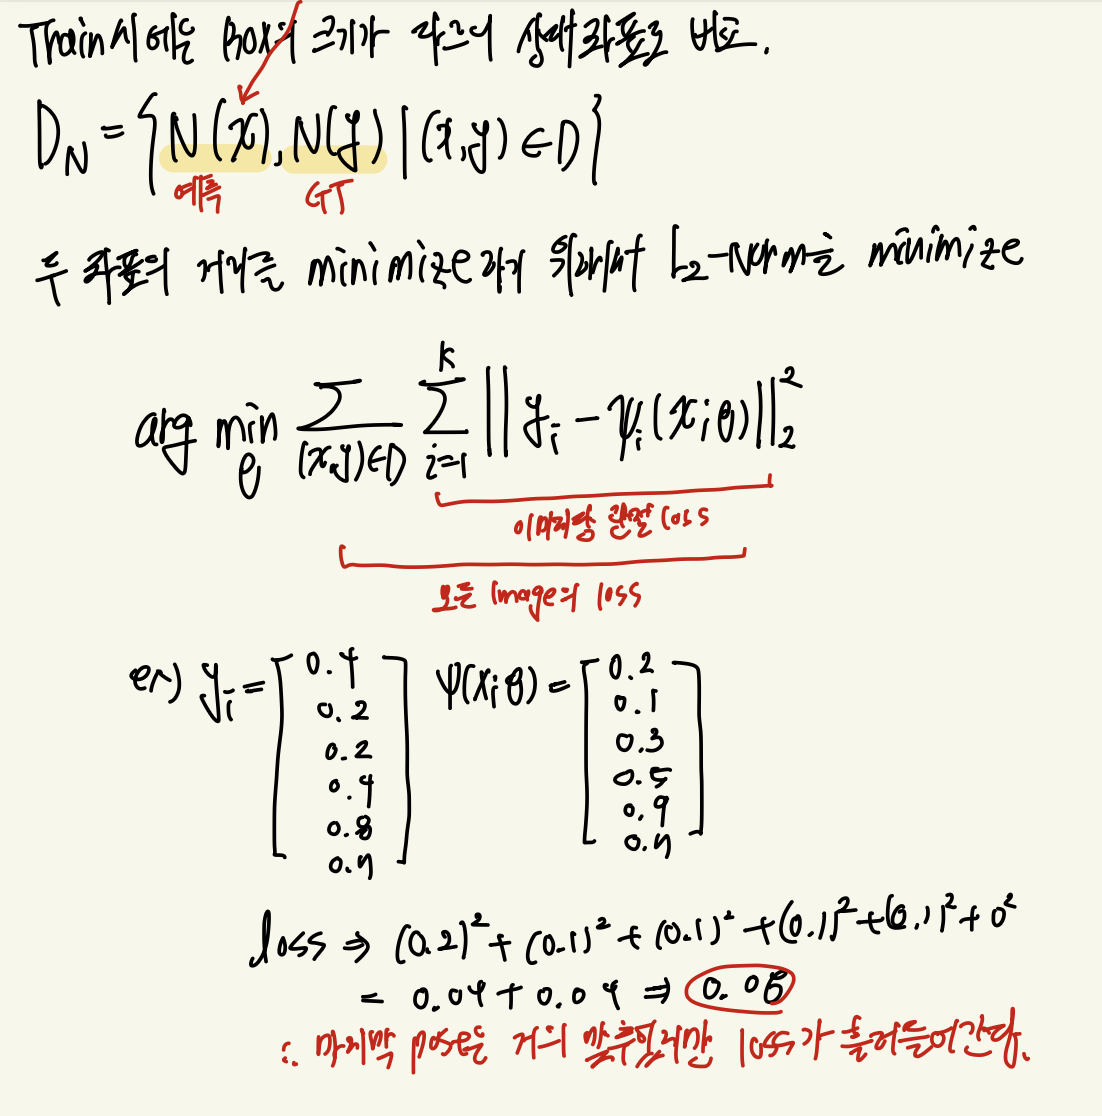 Train시에는 Box의 크기가 다르니 상대좌표로 변환.
D_N = { N(x), N(y) | (x,y) ∈ D }
예측 GT
두 좌표의 거리를 minimize하기 위해서 L₂-Norm을 minimize
arg min_θ Σ_{(x,y)∈D} Σ_{i=1}^{k} || y_i - ψ_i(x;θ) ||₂²
이미지당 관절 loss
모든 Image의 loss
ex) y_i = [0.4 ψ(x;θ) = [0.2
0.2 0.1
0.2 0.3
0.4 0.5
0.8 0.9
0.7] 0.7]
loss ⇒ (0.2)² + (0.1)² + (0.1)² + (0.1)² + (0.1)² + 0²
= 0.04 + 0.04 ⇒ 0.08
∴ 마지막 pose은 거의 맞추었지만 loss가 흘러들어간다.